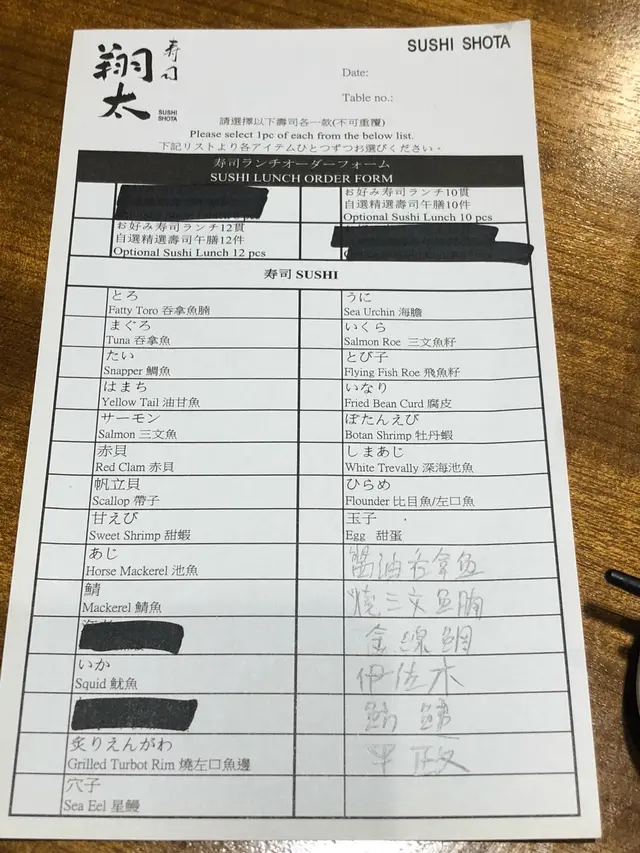 翔太
寿司
SUSHI
SHOTA
SUSHI SHOTA
Date:
Table no.:
請選擇以下壽司各一款(不可重覆)
Please select 1pc of each from the below list.
下記リストより各アイテムひとつずつお選びください。
寿司ランチオーダーフォーム
SUSHI LUNCH ORDER FORM
お好み寿司ランチ10貫
自選精選壽司午膳10件
Optional Sushi Lunch 10 pcs
お好み寿司ランチ12貫
自選精選壽司午膳12件
Optional Sushi Lunch 12 pcs
寿司 SUSHI
とろ
Fatty Toro 吞拿魚腩
うに
Sea Urchin 海膽
まぐろ
Tuna 吞拿魚
いくら
Salmon Roe 三文魚籽
たい
Snapper 鯛魚
とび子
Flying Fish Roe 飛魚籽
はまち
Yellow Tail 油甘魚
いなり
Fried Bean Curd 腐皮
サーモン
Salmon 三文魚
ぼたんえび
Botan Shrimp 牡丹蝦
赤貝
Red Clam 赤貝
しまあじ
White Trevally 深海池魚
帆立貝
Scallop 帶子
ひらめ
Flounder 比目魚/左口魚
甘えび
Sweet Shrimp 甜蝦
玉子
Egg 甜蛋
あじ
Horse Mackerel 池魚
醬油吞拿魚
鯖
Mackerel 鯖魚
燒三文魚腩
金線鯛
いか
Squid 魷魚
伊佐木
炙りえんがわ
Grilled Turbot Rim 燒左口魚邊
平政
穴子
Sea Eel 星鰻